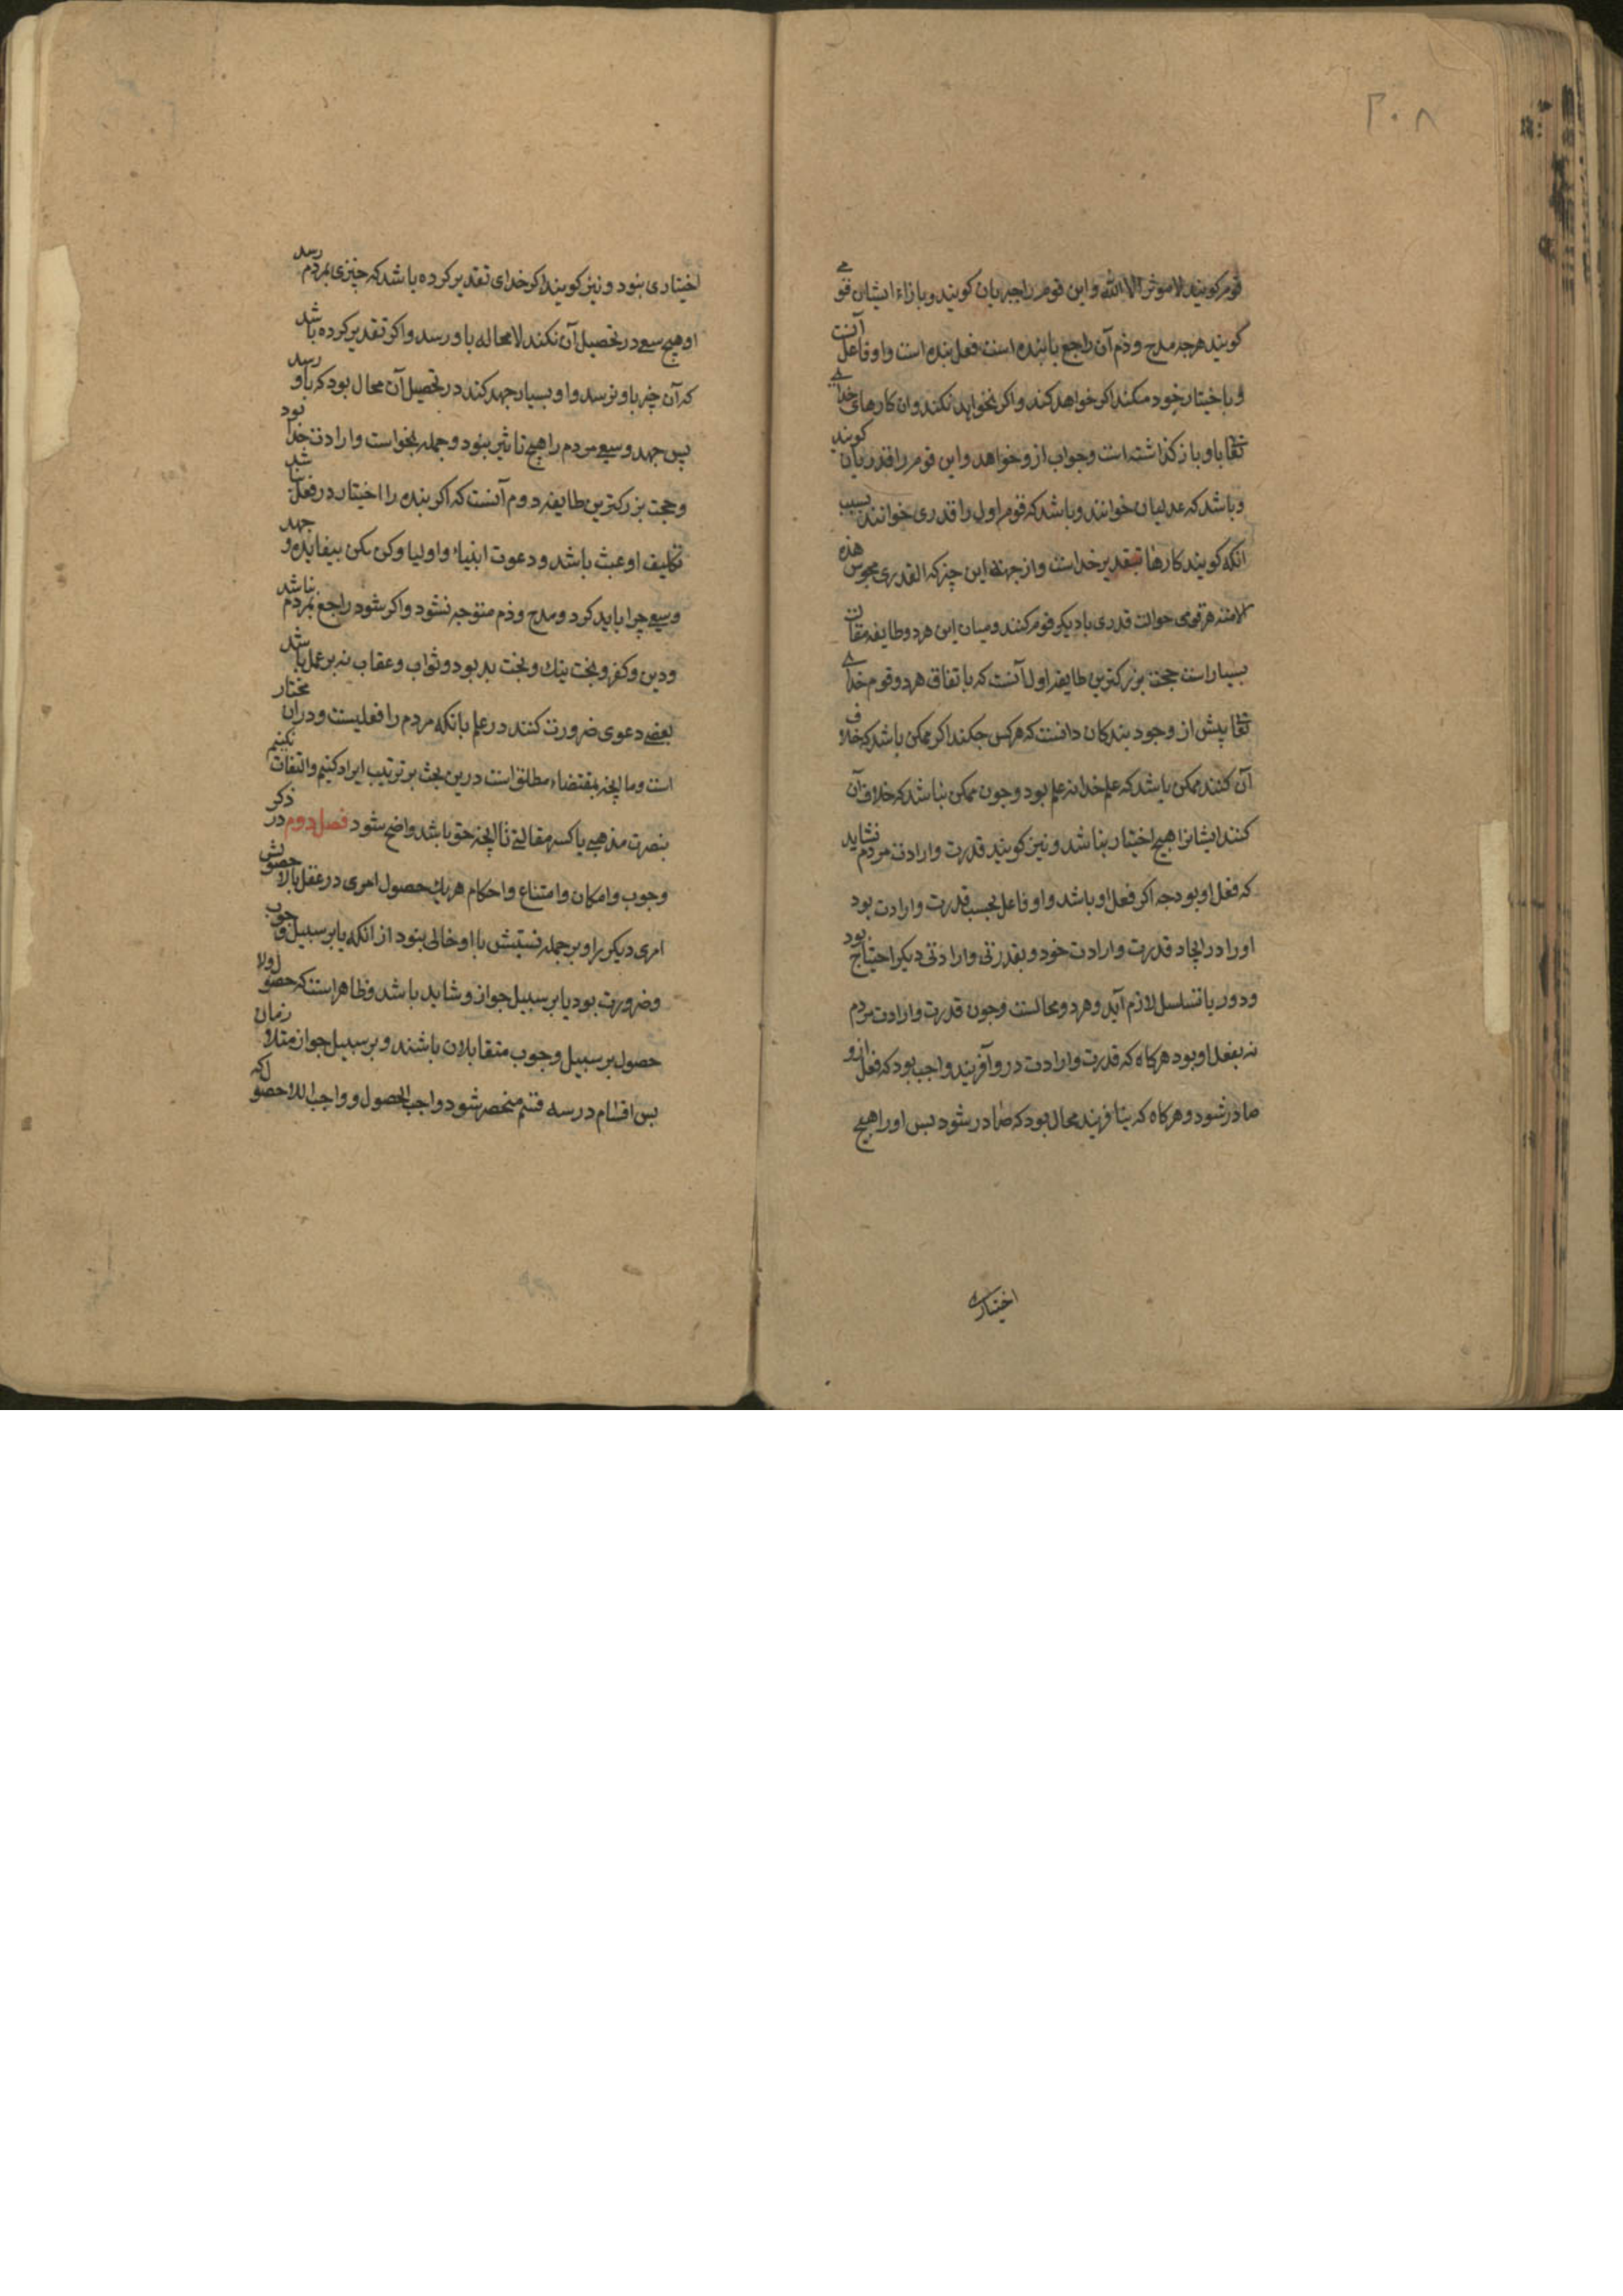 ۲۰۸
قوم کویند لا موثر الا الله و این قوم را جبریان کویند و بازاء ایشان قومی
کویند هر چه مدح و ذم آن راجع با بنده است فعل بنده است و او فاعل آنست
و باختیار خود میکند اکر خواهد کند و اکر نخواهد نکند و ان کارهای خدای
تعالی باو باز کذاشته است و جواب ازو خواهد و این قوم را قدریان کویند
و باشد که عدلیان خوانند و باشد که قوم اول را قدری خوانند بسبب
انکه کویند کارها بتقدیر خداست و از جهت این چیز که القدری مجوس هذه
الامته هر قومی حوالت قدری با دیکر قوم کنند و میان این هر دو طایفه مقالات
بسیار است حجت بزرکترین طایفه اول آنست که باتفاق هر دو قوم خدای
تعالی پیش از وجود بندکان دانست که هر کس چکند اکر ممکن باشد که خلاف
آن کنند ممکن باشد که علم خدا نه علم بود و چون ممکن نباشد که خلاف آن
کنند ایشانرا هیچ اختیار نباشد و نیز کویند قدرت و ارادت مردم نشاید
که فعل او بود چه اکر فعل او باشد و او فاعل بحسب قدرت و ارادت بود
او را در ایجاد قدرت و ارادت خود و بقدرتی و ارادتی دیکر احتیاج بود
و دور یا تسلسل لازم آید و هر دو محالست و چون قدرت و ارادت مردم
نه بفعل او بود هرکاه که قدرت و ارادت درو آفریند واجب بود که فعل ازو
صادر شود و هرکاه که نیافریند محال بود که صادر شود پس او را هیچ
اختیاری
اختیاری نبود و نیز کویند اکر خدای تقدیر کرده باشد که چیزی بمردم رسد
او هیچ سعی در تحصیل آن نکند لامحاله باو رسد و اکر تقدیر کرده باشد
که آن چیز باو نرسد و او بسیار جهد کند در تحصیل آن محال بود که باو رسد
پس جهد و سعی مردم را هیچ تاثیر نبود و جمله بخواست و ارادت خدا بود
و حجت بزرکترین طایفه دوم آنست که اکر بنده را اختیار در فعل نباشد
تکلیف او عبث باشد و دعوت انبیاء و اولیا و کن مکن بیفایده و جهد
و سعی چرا باید کرد و مدح و ذم متوجه نشود و اکر شود راجع بمردم نباشد
و دین و کفر و بخت نیک و بخت بد بود و ثواب و عقاب نه بر عمل باشد
بعضی دعوی ضرورت کنند در علم بانکه مردم را فعلیست و در ان مختار
است و ما انچه بمقتضاء مطلق است درین بحث بر ترتیب ایراد کنیم و التفات نکنیم
بنصرت مذهبی یا کسر مقالتی تا انچه حق باشد واضح شود فصل دوم در ذکر
وجوب و امکان و امتناع و احکام هر یک حصول امری در عقل یا لاحصولش
امری دیکر را و بر جمله نسبتش با او خالی نبود از انکه یا بر سبیل وجوب
و ضرورت بود یا بر سبیل جواز و شاید باشد و ظاهر است که حصول ولا
حصول بر سبیل وجوب متقابلان باشند و بر سبیل جواز متلازمان
پس اقسام در سه قسم منحصر شود واجب الحصول و واجب اللاحصول که